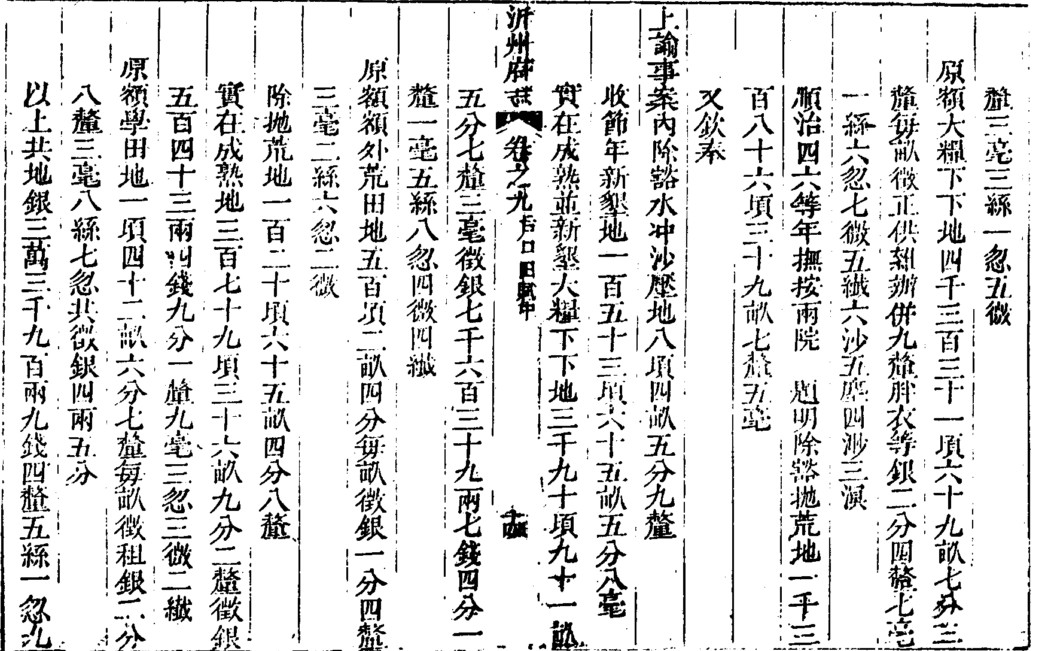 釐三毫三絲一忽五微
原額大糧下下地四千三百三十一頃六十九畝七分三
釐每畝徵正供雜辦併九釐胖衣等銀二分四釐七毫
一絲六忽七微五纖六沙五塵四渺三漠
順治四六等年撫按兩院 題明除豁拋荒地一千三
百八十六頃三十九畝七釐五毫
又欽奉
上諭事案內除豁水冲沙壓地八頃四畝五分九釐
收節年新墾地一百五十三頃六十五畝五分八毫
實在成熟並新墾大糧下下地三千九十頃九十一畝
沂州府志 卷之九 戶口田賦中 十四
五分七釐三毫徵銀七千六百三十九兩七錢四分一
釐一毫五絲八忽四微四纖
原額額外荒田地五百頃二畝四分每畝徵銀一分四釐
三毫二絲六忽二微
除拋荒地一百二十頃六十五畝四分八釐
實在成熟地三百七十九頃三十六畝九分二釐徵銀
五百四十三兩四錢九分一釐九毫三忽三微二纖
原額學田地一頃四十二畝六分七釐每畝徵租銀二分
八釐三毫八絲七忽共徵銀四兩五分
以上共地銀三萬三千九百兩九錢四釐五絲一忽九